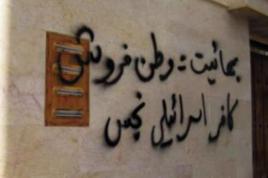 بهائیت = وطن فروش
کافر اسرائیلی نجس